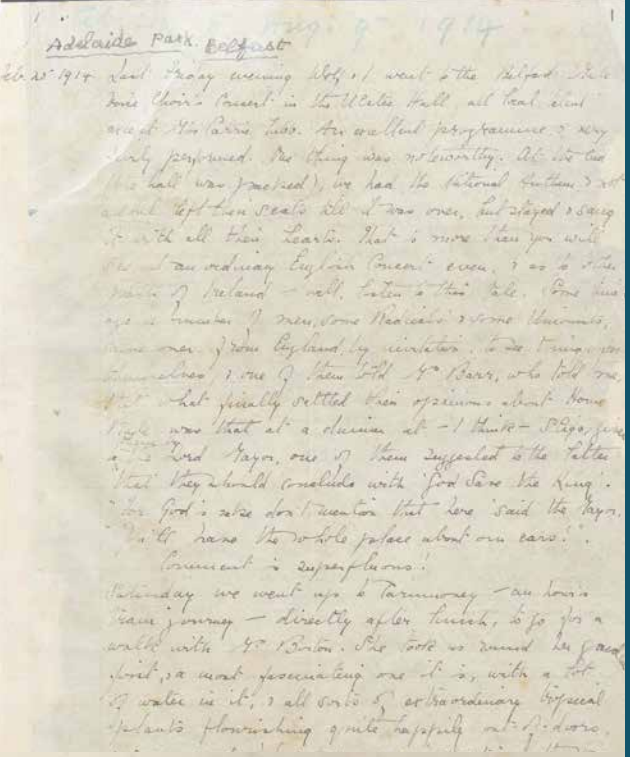 Aug. 9th 1914
1
Adelaide Park. Belfast
Feb 25 1914 Last Friday evening Wolf & I went to the Belfast Male
Voice Choir's Concert in the Ulster Hall, all local talent
except Miss Carrie Tubb. An excellent programme & very
finely performed. One thing was noteworthy. At the end
(the hall was packed), we had the National Anthem & not
a soul left their seats till it was over, but stayed & sang
it with all their hearts. That is more than you will
see at an ordinary English Concert even, & as to other
parts of Ireland – well, listen to this tale. Some time
ago a number of men, some Radicals & some Unionists,
came over from England, by invitation, to see things for
themselves, & one of them told Mr Barr, who told me,
that what finally settled their opinions about Home
Rule was that at a dinner at – I think – Sligo, given
by the Lord Mayor, one of them suggested to the latter
that they should conclude with "God Save the King".
"For God's sake don't mention that here" said the Mayor,
"We'll have the whole place about our ears!".
Comment is superfluous!
Saturday we went up to – an hour's
train journey – directly after lunch, to go for a
walk with Mrs. She took us round her garden
first, & a most fascinating one it is, with a lot
of water in it, & all sorts of extraordinary tropical
plants flourishing quite happily out-of-doors,